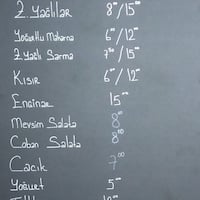 Z. Yağlılar 8⁰⁰/15⁰⁰
Yoğurtlu Makarna 6⁰⁰/12⁰⁰
Z. Yağlı Sarma 7⁵⁰/15⁰⁰
Kısır 6⁰⁰/12⁰⁰
Enginar 15⁰⁰
Mevsim Salata 8⁰⁰
Çoban Salata 8⁰⁰
Cacık 7⁰⁰
Yoğurt 5⁰⁰